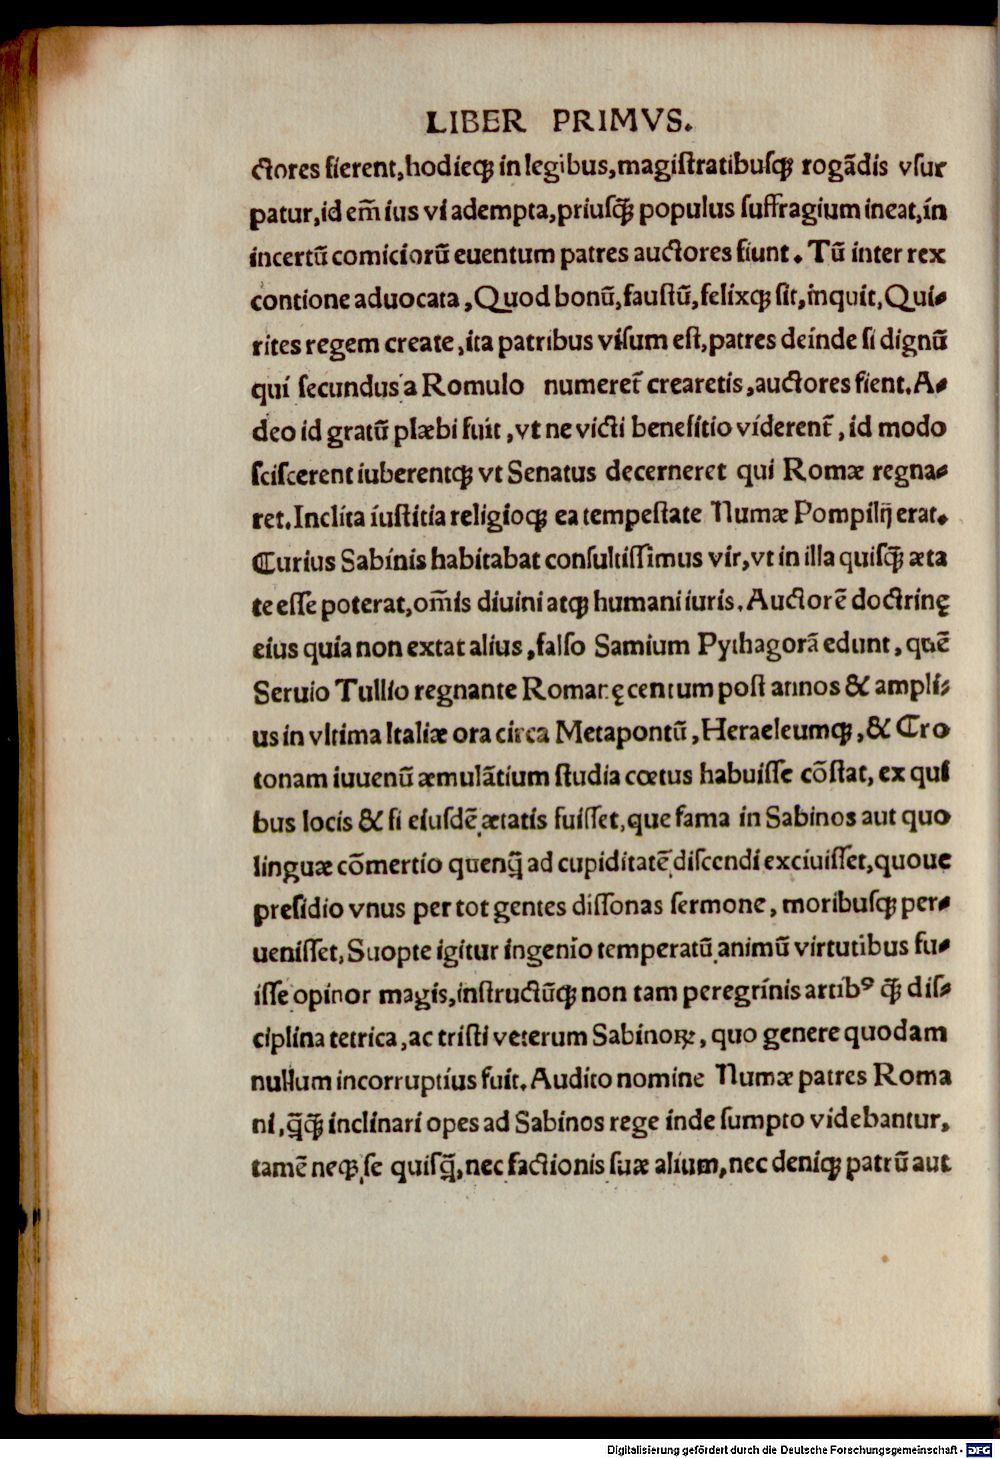 LIBER PRIMVS.
ctores fierent,hodieq̃ in legibus,magistratibusq̃ rogãdis vsur
patur,id em̃ ius vi adempta,priusq̃ populus suffragium ineat,in
incertũ comiciorũ euentum patres auctores fiunt. Tũ inter rex
contione aduocata,Quod bonũ,faustũ,felixq̃ sit,inquit,Qui-
rites regem create,ita patribus visum est,patres deinde si dignũ
qui secundus a Romulo numeret̃ crearetis,auctores fient.A-
deo id gratũ plæbi fuit,vt ne victi benefitio viderent̃,id modo
sciscerent iuberentq̃ vt Senatus decerneret qui Romæ regna-
ret.Inclita iustitia religioq̃ ea tempestate Numæ Pompilij erat.
Curius Sabinis habitabat consultissimus vir,vt in illa quisq̃ æta
te esse poterat,om̃is diuini atq̃ humani iuris.Auctorẽ doctrinę
eius quia non extat alius,falso Samium Pythagorã edunt,quẽ
Seruio Tullio regnante Romanę centum post annos & ampli-
us in vltima Italiæ ora circa Metapontũ,Heraeleumq̃,& Cro
tonam iuuenũ æmulãtium studia cœtus habuisse cõstat,ex qui
bus locis & si eiusdẽ ætatis fuisset,que fama in Sabinos aut quo
linguæ cõmertio quenq̃ ad cupiditatẽ discendi exciuisset,quoue
presidio vnus per tot gentes dissonas sermone,moribusq̃ per-
uenisset,Suopte igitur ingenio temperatũ animũ virtutibus fu-
isse opinor magis,instructũq̃ non tam peregrinis artibꝰ q̃ dis-
ciplina tetrica,ac tristi veterum Sabinoꝝ,quo genere quodam
nullum incorruptius fuit.Audito nomine Numæ patres Roma
ni,q̃q̃ inclinari opes ad Sabinos rege inde sumpto videbantur,
tamẽ neq̃ se quisq̃,nec factionis suæ alium,nec deniq̃ patrũ aut
Digitalisierung gefördert durch die Deutsche Forschungsgemeinschaft - DFG